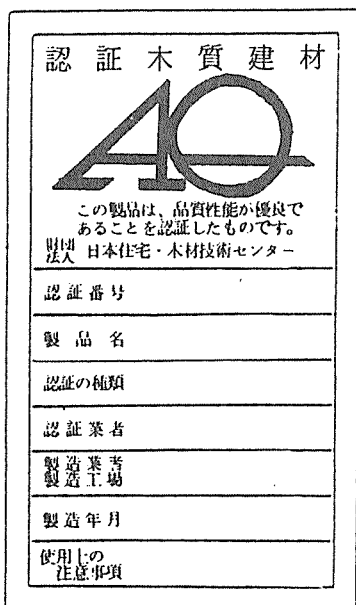 認証木質建材
AQ
この製品は、品質性能が優良で
あることを認証したものです。
財団法人 日本住宅・木材技術センター
認証番号
製品名
認証の種類
認証業者
製造業者
製造工場
製造年月
使用上の
注意事項